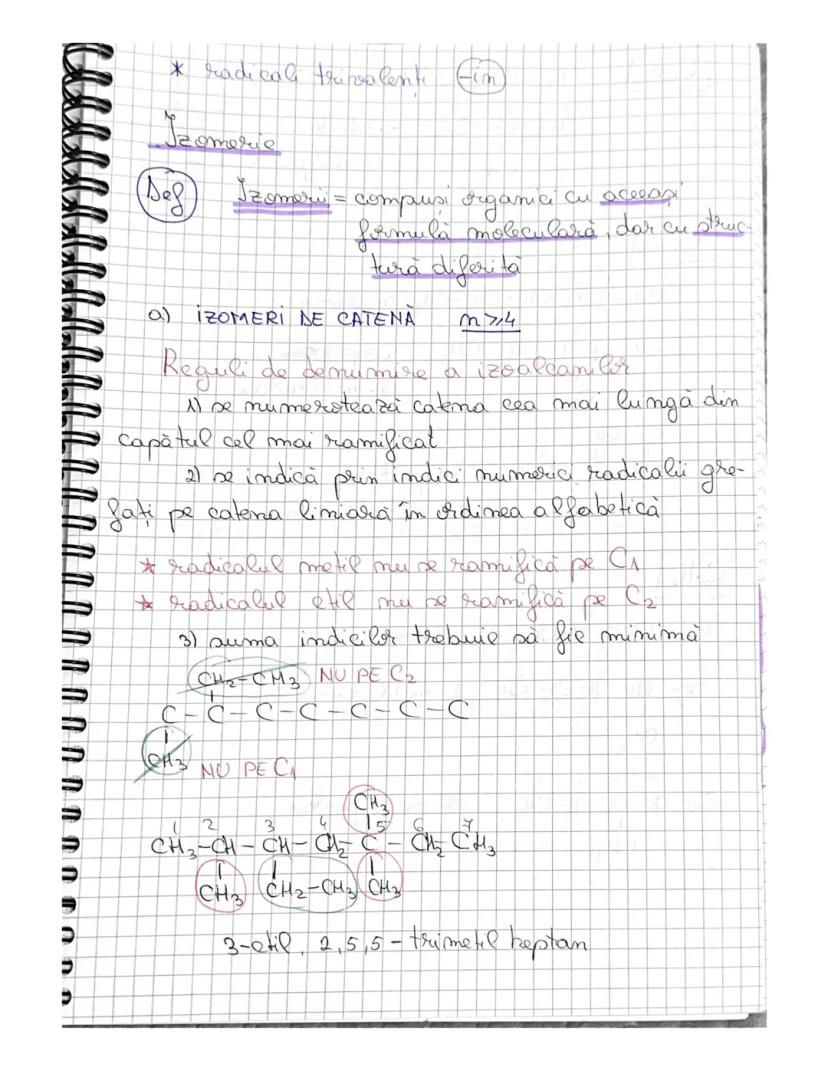 * radicali trivalenți -in
Izomerie
Def Izomeri = compuși organici cu aceeași
formulă moleculară, dar cu struc-
tură diferită
a) IZOMERI DE CATENĂ n≥4
Reguli de denumire a izoalcanilor
1) se numerotează catena cea mai lungă din
capătul cel mai ramificat
2) se indică prin indici numerici radicalii gre-
fați pe catena liniară în ordinea alfabetică
* radicalul metil nu se ramifică pe C1
* radicalul etil nu se ramifică pe C2
3) suma indicilor trebuie să fie minimă
CH2-CH3 NU PE C2
C-C-C-C-C-C-C
CH3 NU PE C1
CH3
1 2 3 4 5 6 7
CH3-CH-CH-CH2-C-CH2 CH3
CH3 CH2-CH3 CH3
3-etil, 2,5,5-trimetil heptan